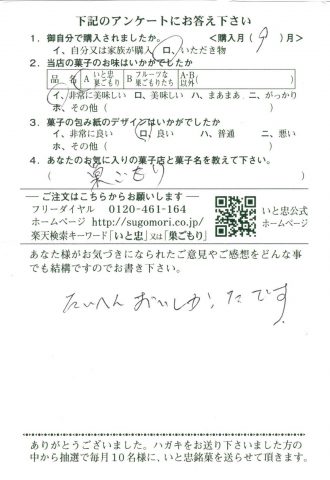 下記のアンケートにお答え下さい
1. 御自分で購入されましたか。 <購入月( 9 )月>
イ、自分又は家族が購入 ロ、いただき物
2. 当店の菓子のお味はいかがでしたか
品 名 A いと忠巣ごもり B フルーツな巣ごもりたち A・B以外
イ、非常に美味しい ロ、美味しい ハ、まあまあ ニ、がっかり
ホ、その他( )
3. 菓子の包み紙のデザインはいかがでしたか
イ、非常に良い ロ、良い ハ、普通 ニ、悪い
ホ、その他( )
4. あなたのお気に入りの菓子店と菓子名を教えて下さい。
( 巣ごもり )
ご注文はこちらからお願いします
フリーダイヤル 0120-461-164
ホームページ http://sugomori.co.jp/
楽天検索キーワード「いと忠」又は「巣ごもり」
いと忠公式
ホームページ
あなた様がお気づきになられたご意見やご感想をどんな事
でも結構ですのでお書き下さい。
たいへんおいしかったです
ありがとうございました。ハガキをお送り下さいました方の
中から抽選で毎月10名様に、いと忠銘菓を送らせて頂きます。